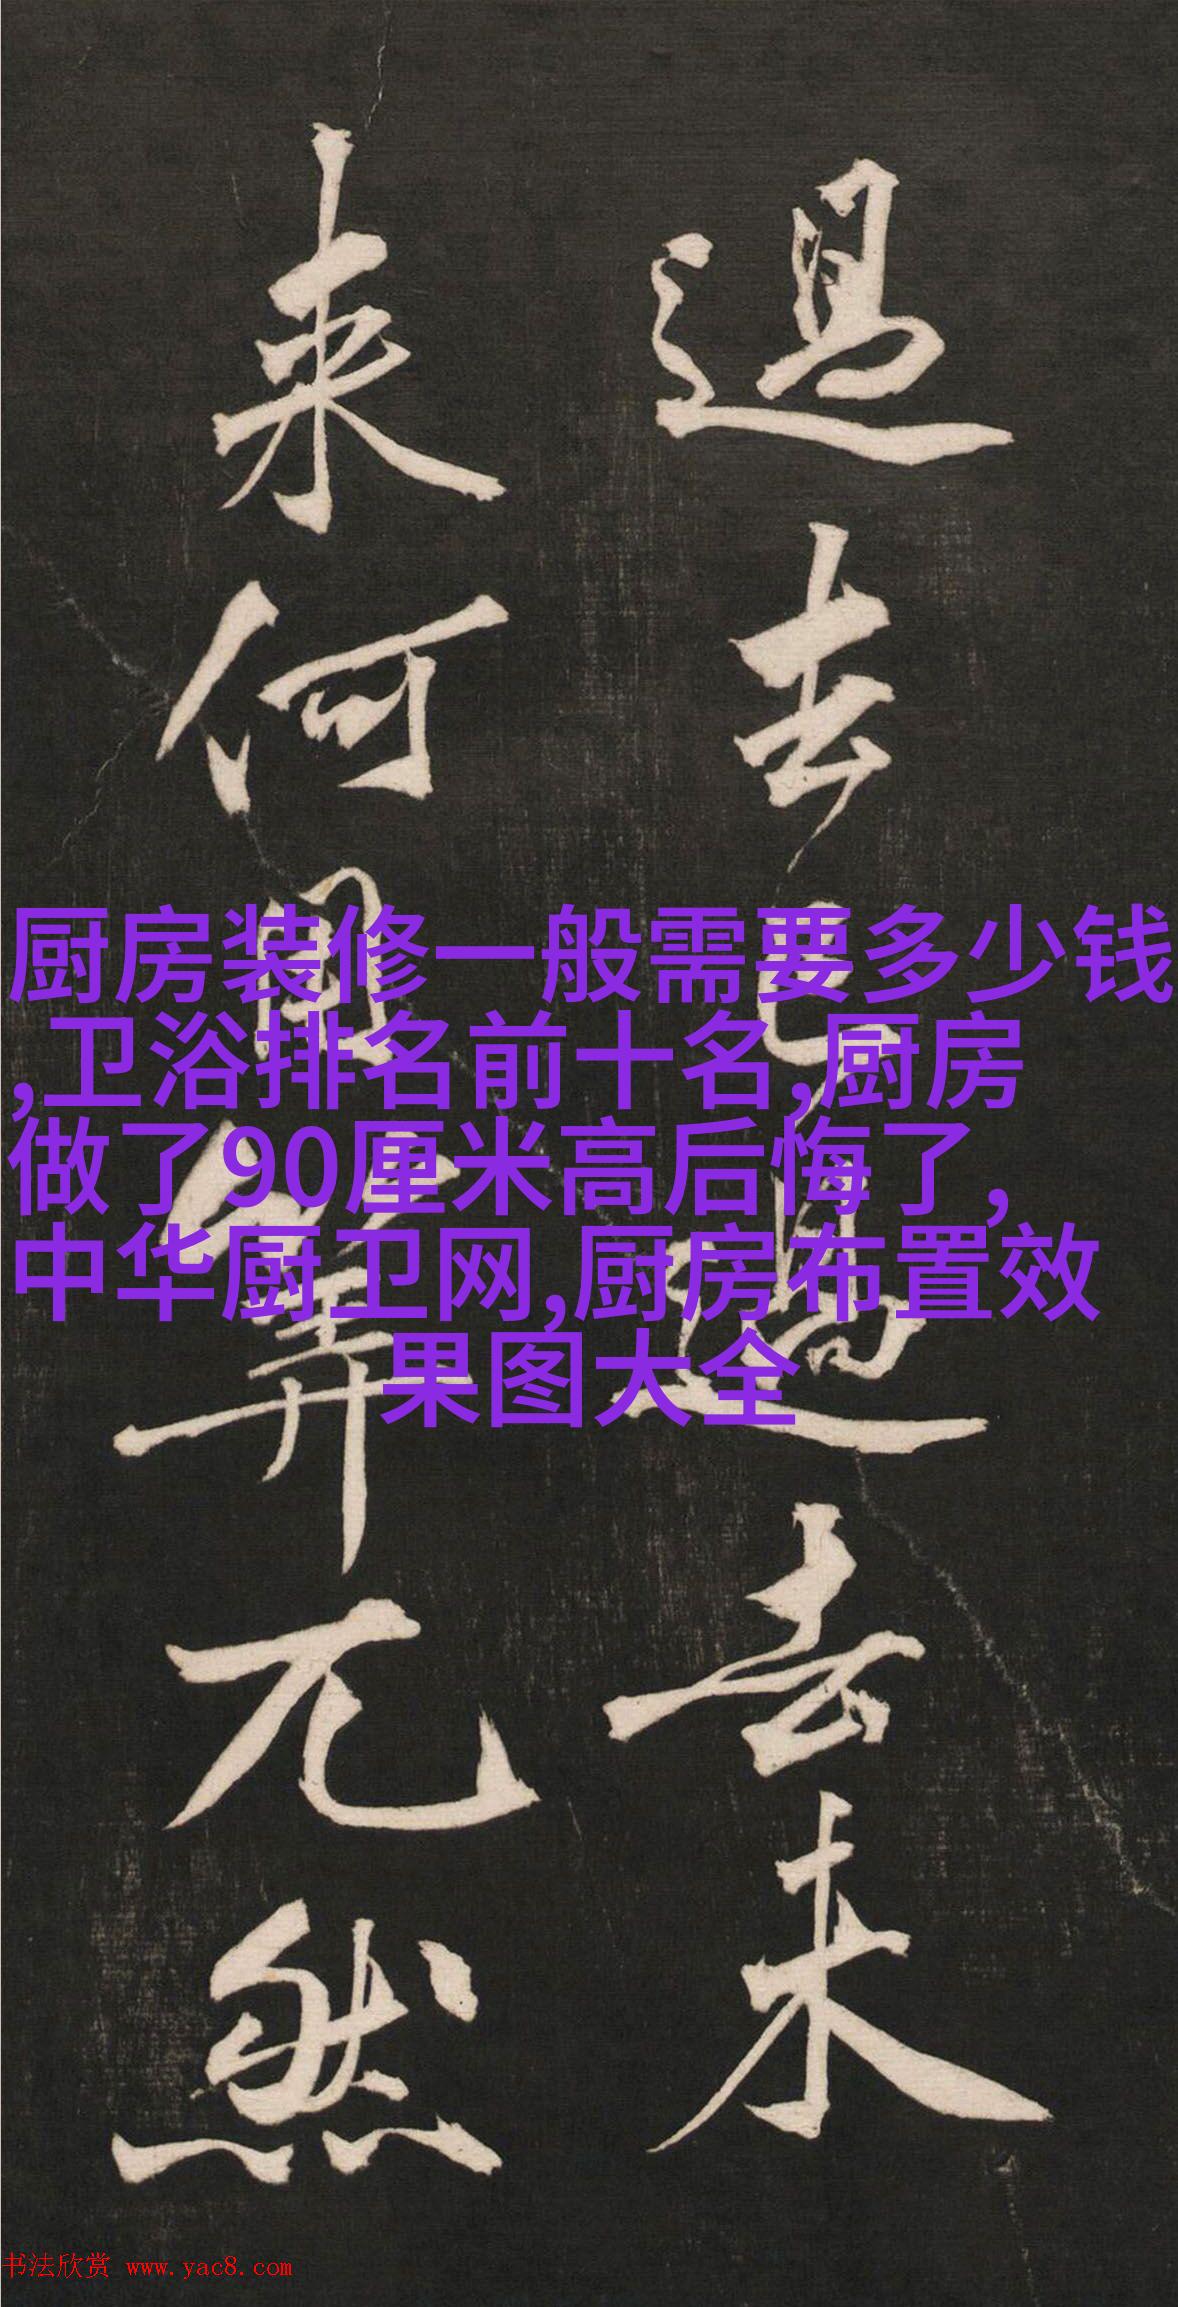 過去已過去未
来何用算兀然
厨房装修一般需要多少钱
,卫浴排名前十名,厨房
做了90厘米高后悔了,
中华厨卫网,厨房布置效
果图大全
书法欣赏 www.yac8.com